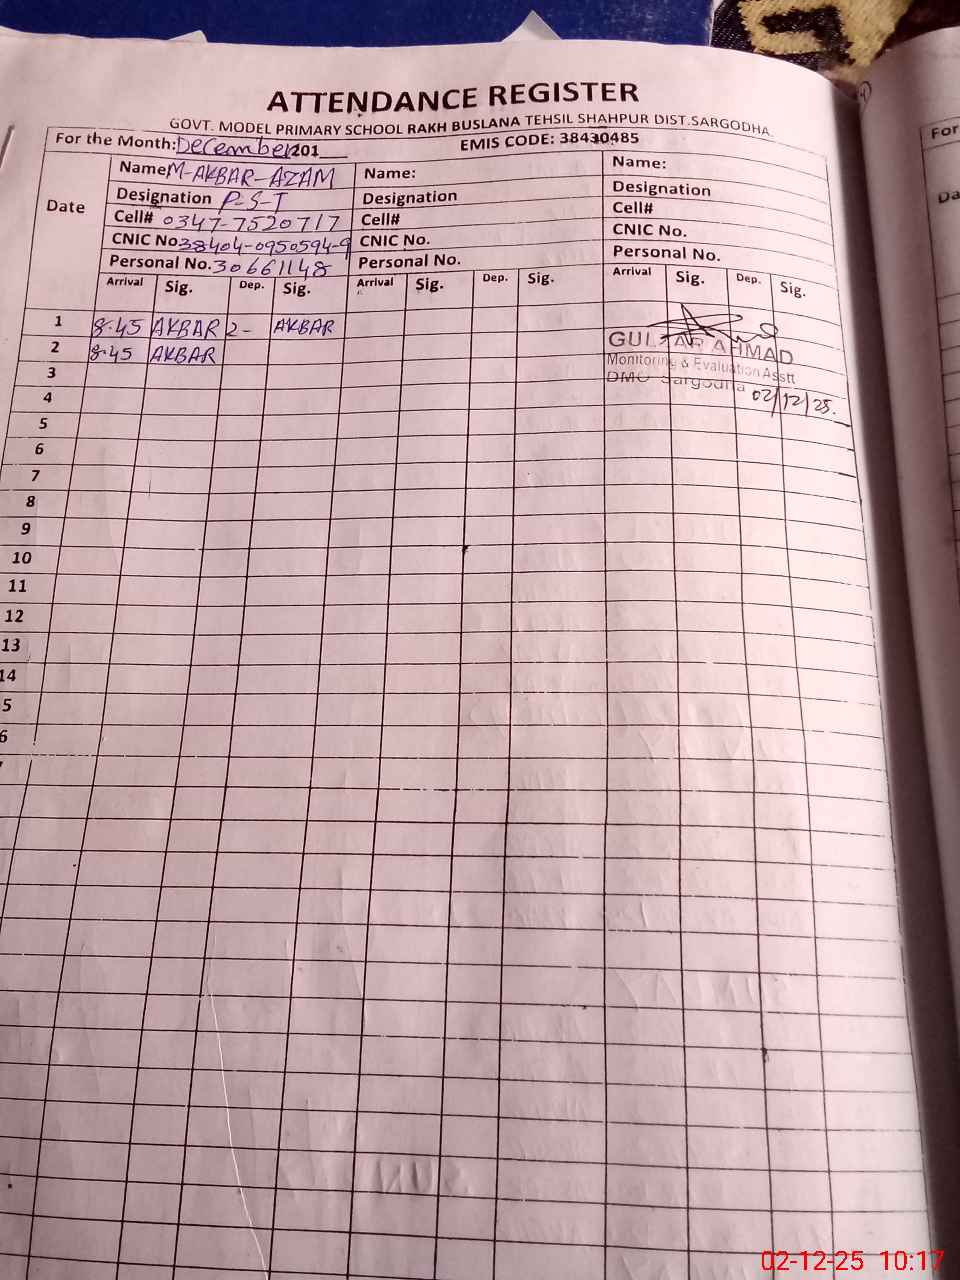 ATTENDANCE REGISTER
GOVT. MODEL PRIMARY SCHOOL RAKH BUSLANA TEHSIL SHAHPUR DIST.SARGODHA
For the Month: December 201__ EMIS CODE: 38430485
Date
Name M-AKBAR-AZAM
Designation P-S-T
Cell# 0347-7520717
CNIC No. 38404-0950594-9
Personal No. 30661148
Arrival Sig. Dep. Sig.
Name:
Designation
Cell#
CNIC No.
Personal No.
Arrival Sig. Dep. Sig.
Name:
Designation
Cell#
CNIC No.
Personal No.
Arrival Sig. Dep. Sig.
1 8.45 AKBAR 2- AKBAR
2 8.45 AKBAR
3
4
5
6
7
8
9
10
11
12
13
14
5
6
GULZAR AHMAD
Monitoring & Evaluation Asstt
DMO Sargodha
02/12/25.
For
Da
02-12-25 10:17